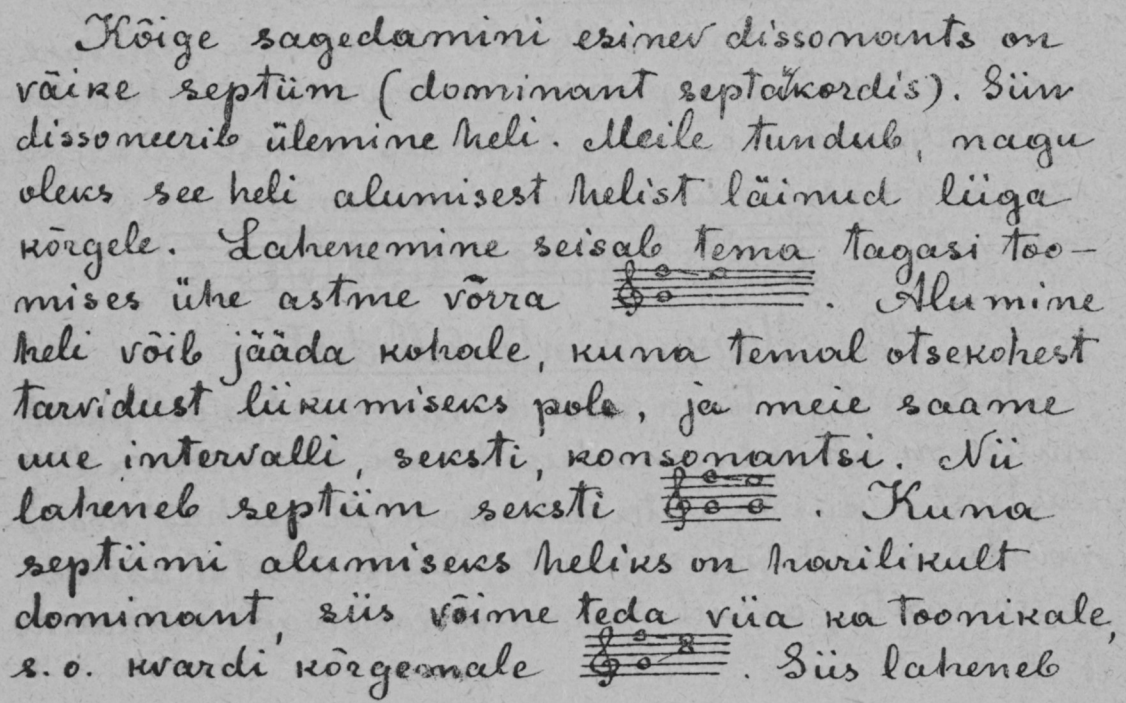 Kõige sagedamini esinev dissonants on
väike septiim (dominant septäkordis). Siin
dissoneerib ülemine heli. Meile tundub, nagu
oleks see heli alumisest helist läinud liiga
kõrgele. Lahenemine seisab tema tagasi too-
mises ühe astme võrra . Alumine
heli võib jääda kohale, kuna temal otsekohest
tarvidust liikumiseks pole, ja meie saame
uue intervalli, seksti, konsonantsi. Nii
laheneb septiim seksti . Kuna
septiimi alumiseks heliks on harilikult
dominant, siis võime teda viia ka toonikale,
s.o. kvardi kõrgemale . Siis laheneb